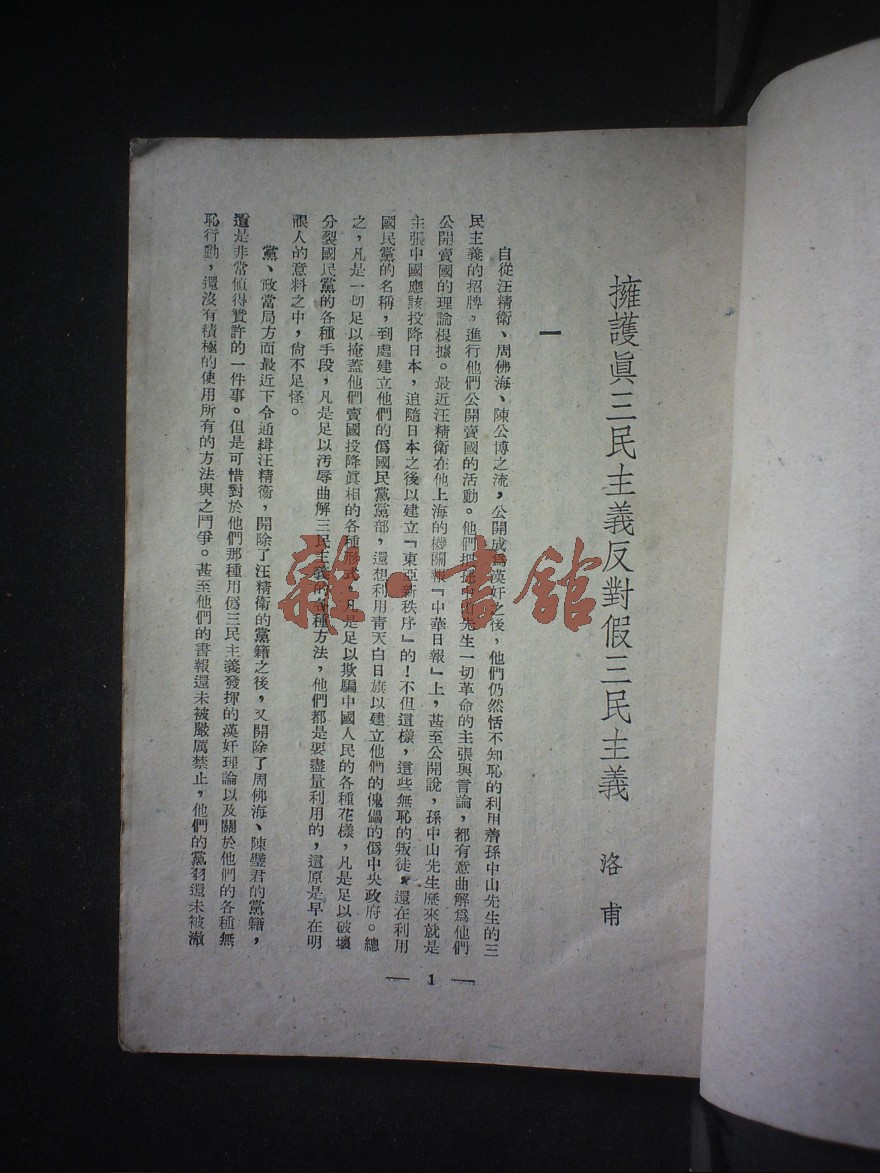 擁護眞三民主義反對假三民主義
洛甫
一
自從汪精衛、周佛海、陳公博之流，公開成爲漢奸之後，他們仍然恬不知恥的利用着孫中山先生的三
民主義的招牌，進行他們公開賣國的活動。他們把孫中山先生一切革命的主張與言論，都有意曲解爲他們
公開賣國的理論根據。最近汪精衛在他上海的機關報『中華日報』上，甚至公開說，孫中山先生歷來就是
主張中國應該投降日本，追隨日本之後以建立『東亞新秩序』的！不但這樣，這些無恥的叛徒，還在利用
國民黨的名稱，到處建立他們的僞國民黨黨部，還想利用青天白日旗以建立他們的傀儡的僞中央政府。總
之，凡是一切足以掩蓋他們賣國投降眞相的各種形式，凡是足以欺騙中國人民的各種花樣，凡是足以破壞
分裂國民黨的各種手段，凡是足以汚辱曲解三民主義的各種方法，他們都是要盡量利用的，這原是早在明
眼人的意料之中，尙不足怪。
黨、政當局方面最近下令通緝汪精衛，開除了汪精衛的黨籍之後，又開除了周佛海、陳璧君的黨籍，
這是非常値得贊許的一件事。但是可惜對於他們那種用僞三民主義發揮的漢奸理論以及關於他們的各種無
恥行動，還沒有積極的使用所有的方法與之鬥爭。甚至他們的書報還未被嚴厲禁止，他們的黨羽還未被澈
— 1 —
雜·書館